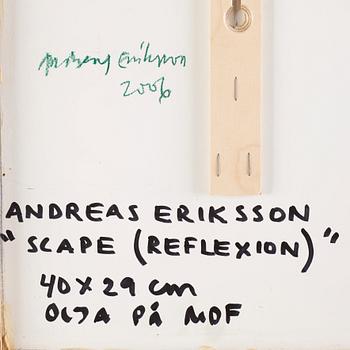 Andreas Eriksson
2006
ANDREAS ERIKSSON
"SCAPE (REFLEXION)"
40 X 29 cm
OLJA PÅ MDF